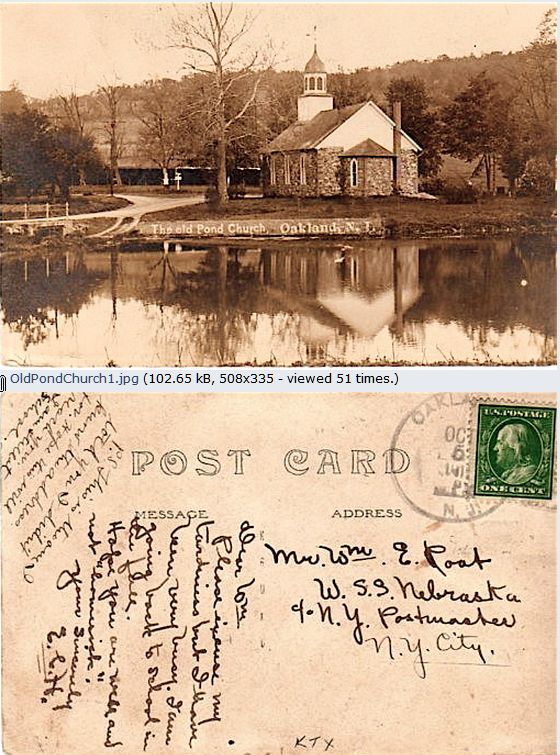 The old Pond Church, Oakland, N.J.
OldPondChurch1.jpg (102.65 kB, 508x335 - viewed 51 times.)
POST CARD
MESSAGE
ADDRESS
OAKLA
OC
6
N.J.
U.S. POSTAGE
ONE CENT
Mr. Wm. E. Post
W.S.S. Nebraska
c/o N.Y. Postmaster
N.Y. City.
Dear Wm
Please excuse my
tardiness but I have
been very busy. I am
going back to school in
the fall.
Hope you are well and
not "homesick".
Your Sincerely
E.C.H.
KTX